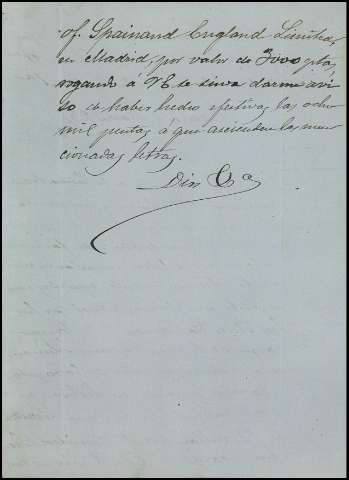 of. Spain and England Limited,
en Madrid, por valor de 3000 ptas,
rogando á VE se sirva darme avi
so de haber hecho efectivas las ocho
mil pesetas á que ascienden las men
cionadas letras.
Dios &ª